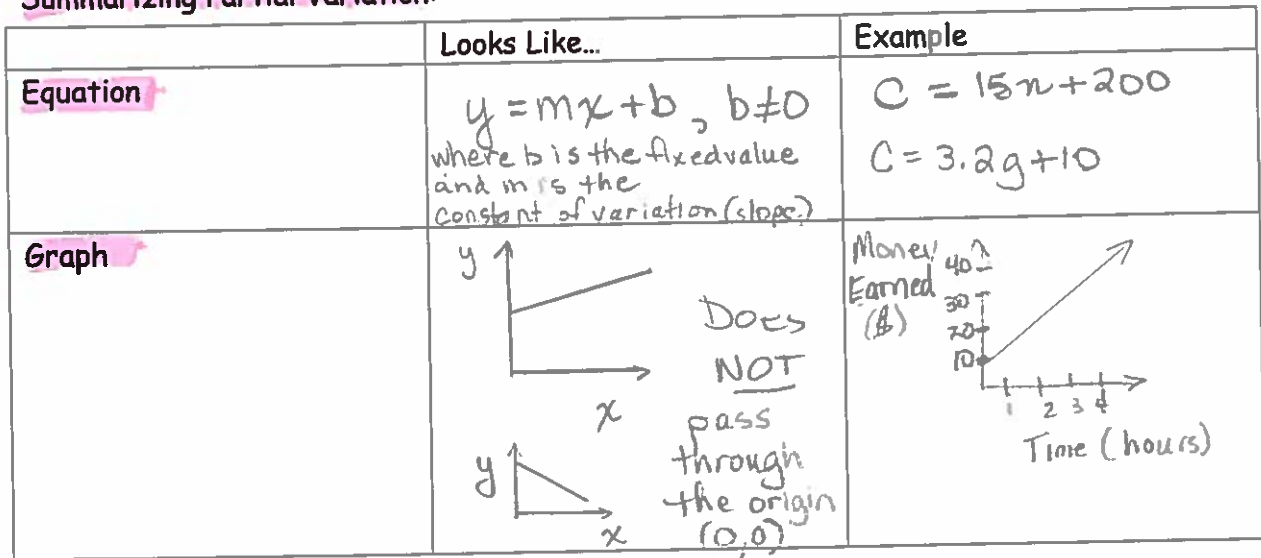 Summarizing Partial Variation:
Looks Like...
Example
Equation
y = mx + b, b ≠ 0
where b is the fixed value
and m is the
constant of variation (slope)
C = 15n + 200
C = 3.2g + 10
Graph
y
x
Does
NOT
pass
through
the origin
(0,0)
y
x
Money
Earned
($)
40
30
20
10
1 2 3 4
Time (hours)